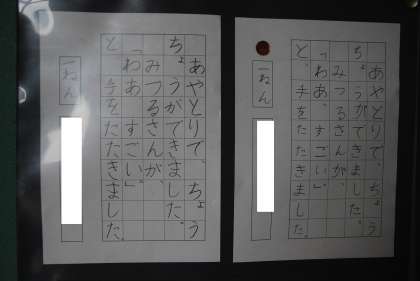 あやとりで、ちょう
ちょうができました。
みつるさんが、
「わあ、すごい」
と、手をたたきました。
一ねん
あやとりで、ちょう
ちょうができました。
みつるさんが、
「わあ、すごい」
と、手をたたきました。
一ねん